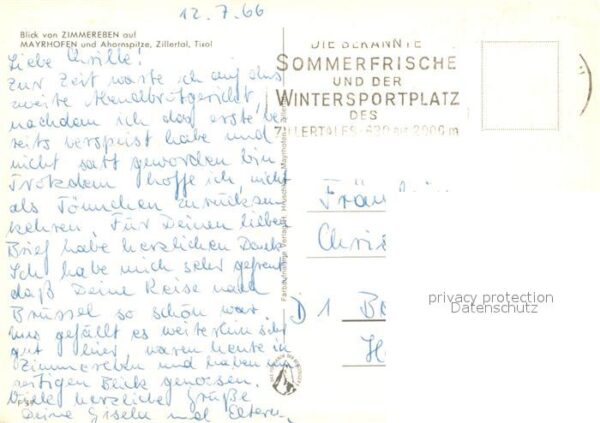 12.7.66
Blick von ZIMMEREBEN auf
MAYRHOFEN und Ahornspitze, Zillertal, Tirol
Liebe Chrille!
Zur Zeit warte ich auf das
zweite Mendbrotgericht,
nachdem ich das erste be
reits verspeist habe und
nicht satt geworden bin
Trotzdem hoffe ich, nicht
als Tönnchen zurückzu
kehren. Für Deinen lieben
Brief habe herzlichen Dank.
Ich habe mich sehr gefreut
daß Deine Reise nach
Brüssel so schön war.
Uns gefällt es weiterhin sehr
gut hier, waren heute in
Zimmereben und haben
seitigen Blick genossen.
Viele herzliche Grüße
Deine Gisela und Eltern.
DIE BEKANNTE
SOMMERFRISCHE
UND DER
WINTERSPORTPLATZ
DES
ZILLERTALES · 630 bis 2000 m
Fräu
Chris
D 1 Be
H
privacy protection
Datenschutz